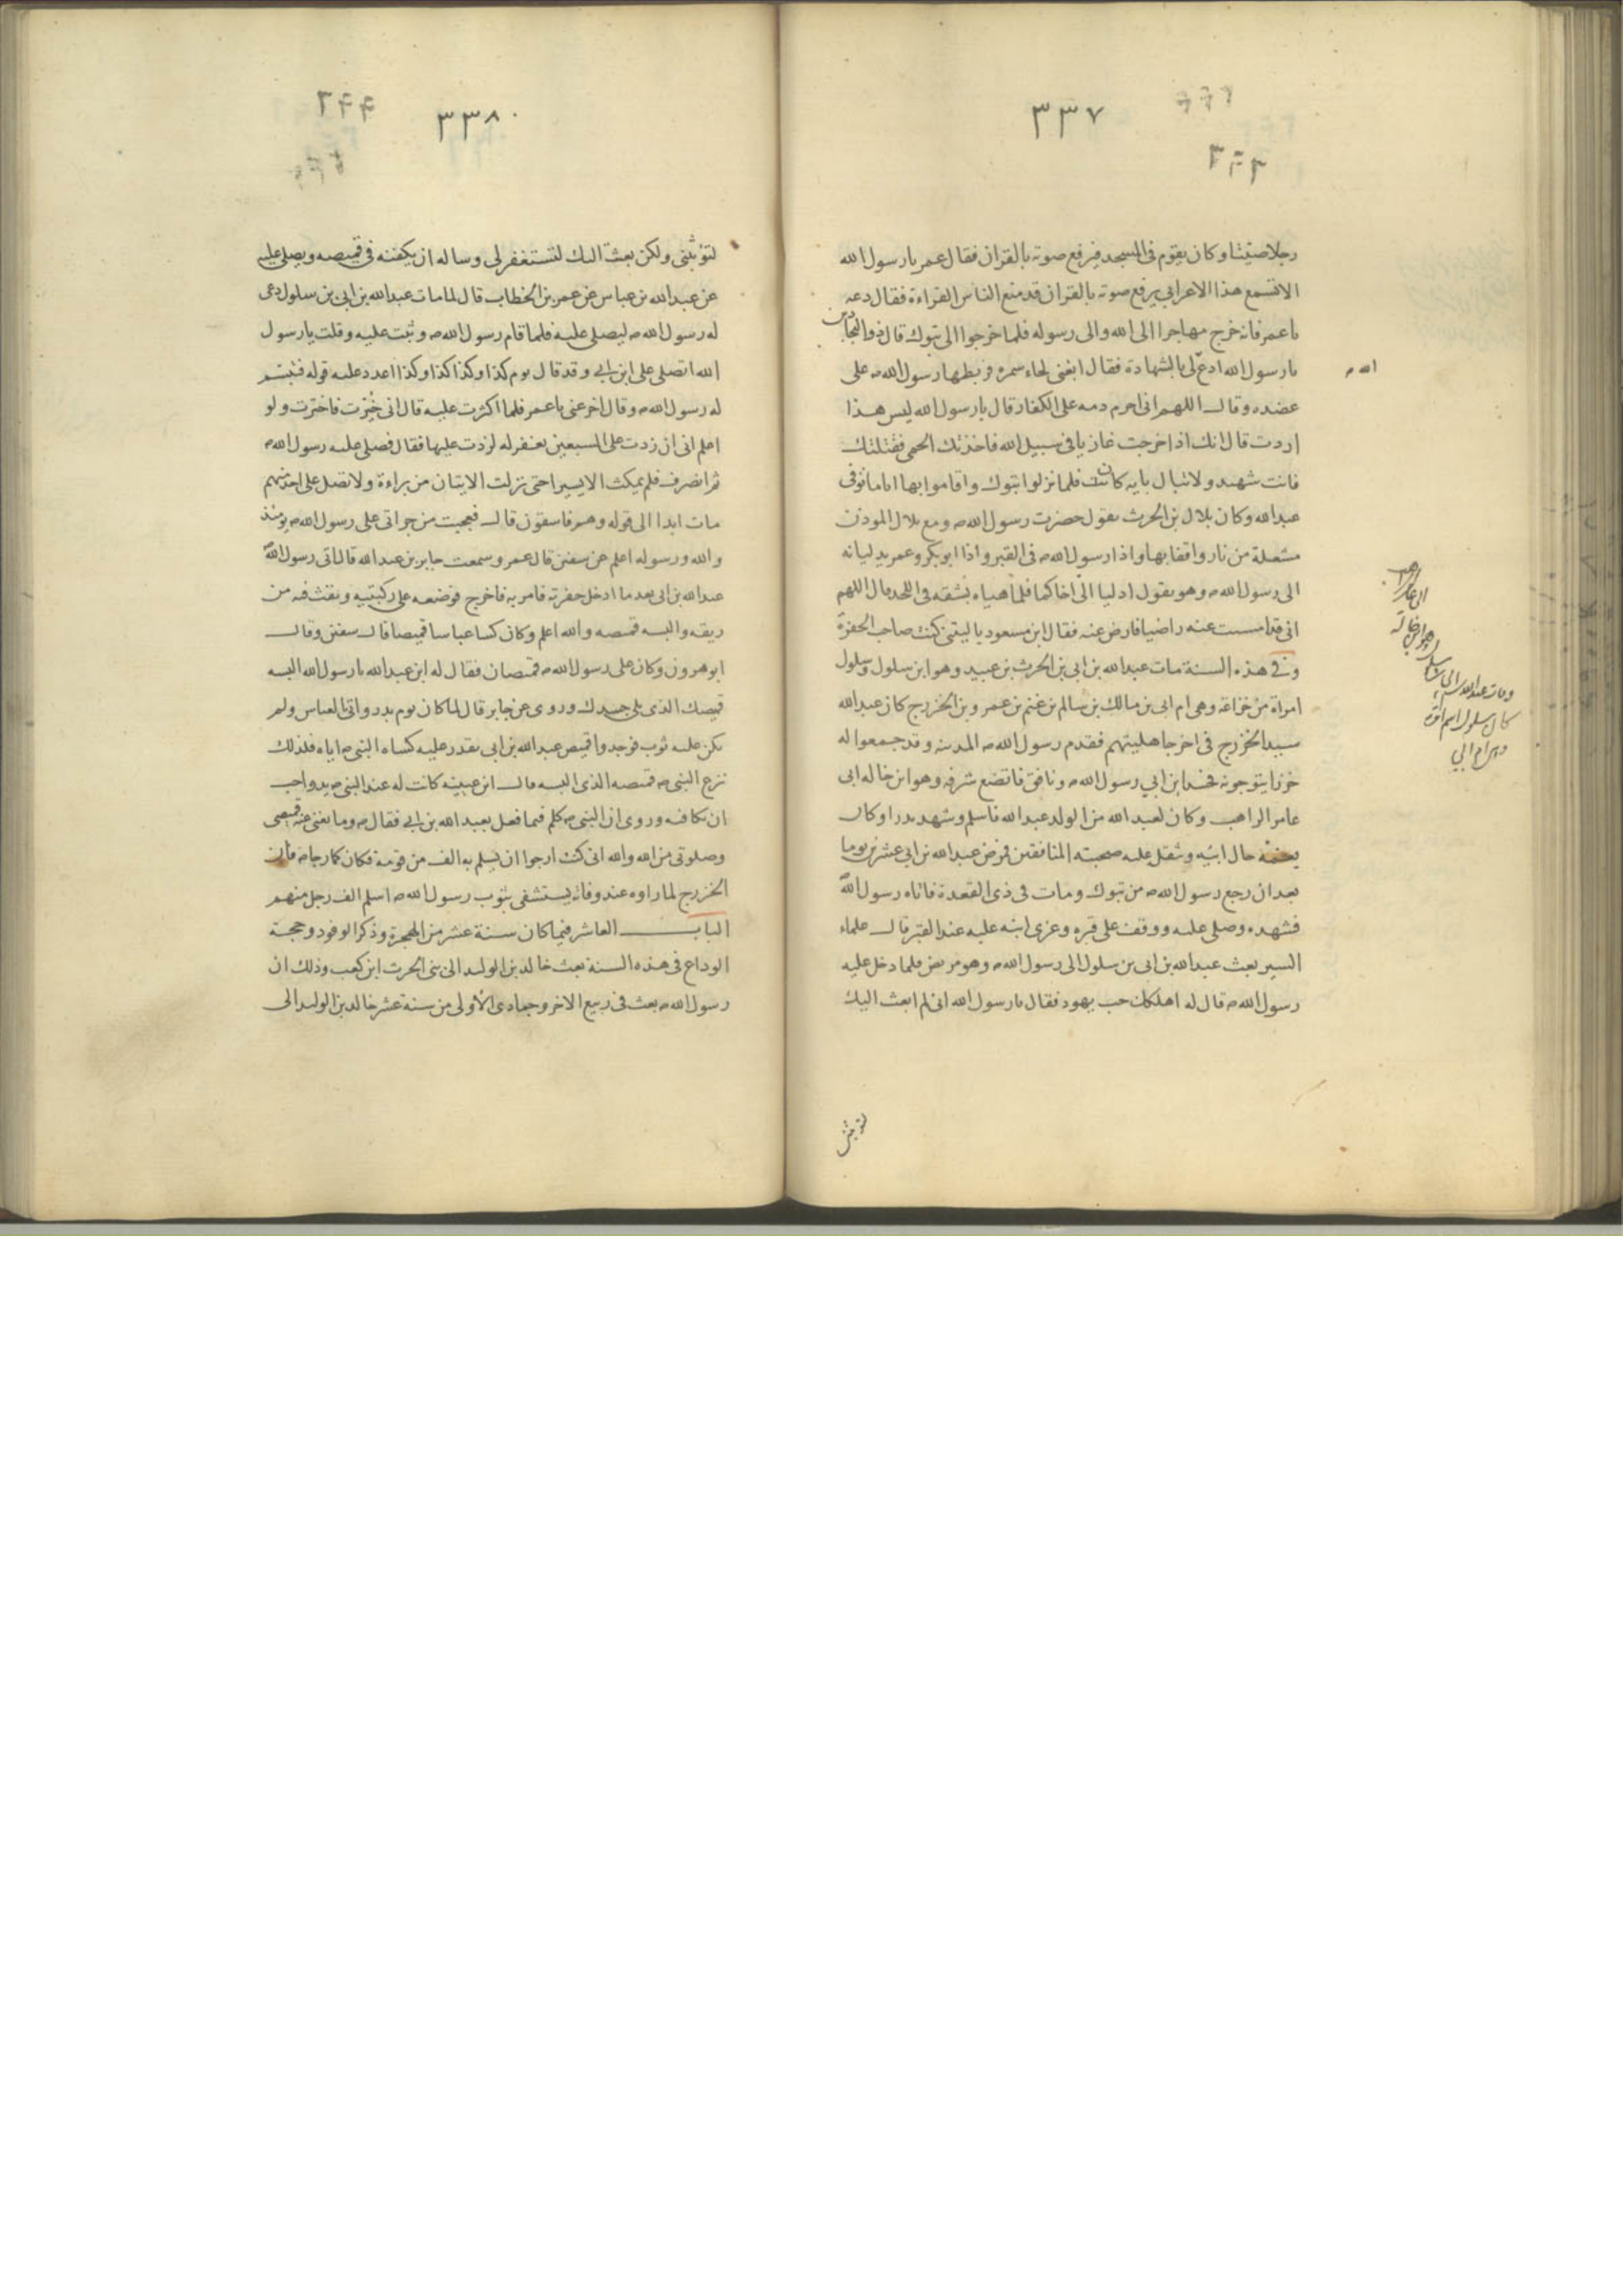 ٣٣٧
رجلا صيتا وكان يقوم في المسجد فيرفع صوته بالقران فقال عمر يا رسول الله
الا تسمع هذا الاعرابي يرفع صوته بالقران قد منع الناس القراءة فقال دعه
يا عمر فانه خرج مهاجرا الى الله والى رسوله فلما خرجوا الى تبوك قال ذو البجادين
يا رسول الله ادع لي بالشهادة فقال ابغني لحاء سمره فربطها رسول الله ص على
عضده وقال اللهم اني احرم دمه على الكفار قال يا رسول الله ليس هذا
اردت قال انك اذا خرجت غازيا في سبيل الله فاخذتك الحمى فقتلتك
فانت شهيد ولا تبال بايه كانت فلما نزلوا تبوك واقاموا بها اياما توفى
عبد الله وكان بلال بن الحرث يقول حضرت رسول الله ص ومع بلال الموذن
مشعلة من نار واقفا بها واذا رسول الله ص في القبر واذا ابو بكر وعمر يدليانه
الى رسول الله ص وهو يقول ادليا الي اخاكما فلما هياه لشقه في اللحد قال اللهم
اني قد امسيت عنه راضيا فارض عنه فقال ابن مسعود يا ليتني كنت صاحب الحفرة
وفي هذه السنة مات عبد الله بن ابي بن الحرث بن عبيد وهو ابن سلول وسلول
امراة من خزاعة وهي ام ابي بن مالك بن سالم بن غنم بن عمرو بن الخزرج كان عبد الله
سيد الخزرج في اخر جاهليتهم فقدم رسول الله ص المدينه وقد جمعوا له
خرزا يتوجونه فحسد ابن ابي رسول الله ص ونافق فاتضع شرفه وهو ابن خاله ابى
عامر الراهب وكان لعبد الله من الولد عبد الله فاسلم وشهد بدرا وكان
يغمه حال ابيه وثقل عليه صحبته المنافقين فمرض عبد الله بن ابي عشرين يوما
بعد ان رجع رسول الله ص من تبوك ومات في ذي القعدة فاتاه رسول الله
فشهده وصلى عليه ووقف على قبره وعزى ابنه عليه عند القبر قال علماء
السير بعث عبد الله بن ابي بن سلول الى رسول الله ص وهو مريض فلما دخل عليه
رسول الله ص قال له اهلكك حب يهود فقال يا رسول الله اني لم ابعث اليك
الله ص
٣٣٨
لتؤنبني ولكن بعثت اليك لتستغفر لي وساله ان يكفنه في قميصه ويصلى عليه
عن عبد الله بن عباس عن عمر بن الخطاب قال لما مات عبد الله بن ابي بن سلول دعى
له رسول الله ص ليصلي عليه فلما قام رسول الله ص وثبت عليه وقلت يا رسول
الله اتصلى على ابن ابي وقد قال يوم كذا وكذا كذا وكذا اعدد عليه قوله فتبسم
له رسول الله ص وقال اخر عني يا عمر فلما اكثرت عليه قال اني خيرت فاخترت ولو
اعلم اني ان زدت على السبعين يغفر له لزدت عليها فقال فصلى عليه رسول الله ص
ثم انصرف فلم يمكث الا يسيرا حتى نزلت الايتان من براءة ولا تصل على احد منهم
مات ابدا الى قوله وهم فاسقون قال فعجبت من جراتي على رسول الله ص يومئذ
والله ورسوله اعلم عن سفين قال عمرو سمعت جابر بن عبد الله قال اتى رسول الله
عبد الله بن ابى بعد ما ادخل حفرته فامر به فاخرج فوضعه على ركبتيه ونفث فيه من
ريقه والبسه قميصه والله اعلم وكان كسا عباسا قميصا قال سفين وقال
ابو هرون وكان على رسول الله ص قميصان فقال له ابن عبد الله يا رسول الله البسه
قميصك الذي يلي جسدك وروى عن جابر قال لما كان يوم بدر واتى العباس ولم
يكن عليه ثوب فوجدوا قميص عبد الله بن ابي يقدر عليه كساه النبي ص اياه فلذلك
نزع النبي ص قميصه الذي البسه قال ابن عيينه كانت له عند النبي ص يد واحب
ان يكافيه وروى ان النبي ص كلم فيما فعل بعبد الله بن ابي فقال ص وما يغنى عنه قميصي
وصلوتي من الله والله اني كنت ارجوا ان يسلم به الف من قومه فكان كما رجاه فان
الخزرج لما راوه عند وفاته يستشفى بثوب رسول الله ص اسلم الف رجل منهم
الباب العاشر فيما كان سنة عشر من الهجرة وذكر الوفود وحجة
الوداع في هذه السنة بعث خالد بن الوليد الى بنى الحرث ابن كعب وذلك ان
رسول الله ص بعث في ربيع الاخر وجمادى الأولى من سنة عشر خالد بن الوليد الى